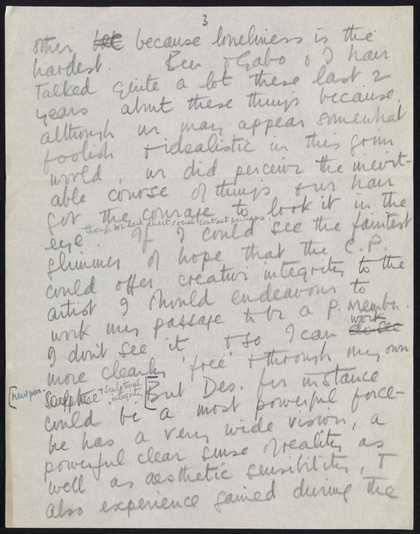 3
other, because loneliness is the
hardest. Ben, & Gabo & I have
talked quite a lot these last 2
years about these things because,
although we may appear somewhat
foolish & idealistic in this grim
world, we did perceive the inevit-
able course of things & we have
got the courage to look it in the
eye. If I could see the faintest
glimmer of hope that the C.P.
could offer creative integrity to the
artist I should endeavour to
work my passage to be a P. Member.
I don't see it, & so I can work
more clearly 'free' & through my own
sculpture & sculptural integrity
[New para [But Des. for instance
could be a most powerful force -
he has a very wide vision, a
powerful clear sense of reality as
well as aesthetic sensibility, &
also experience gained during the